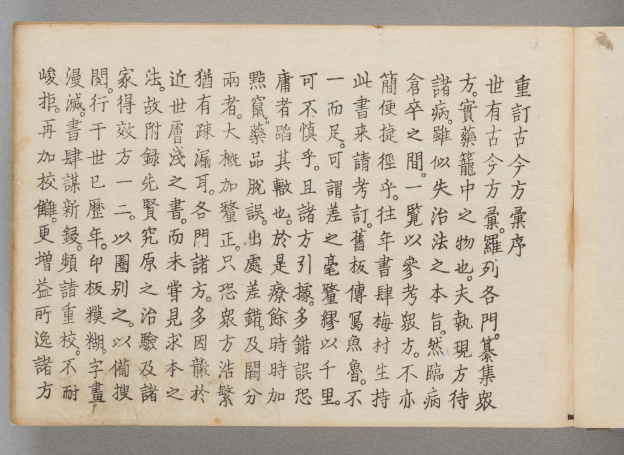 重訂古今方彙序
世有古今方彙。羅列各門。纂集眾
方。實藥籠中之物也。夫執現方待
諸病。雖似失治法之本旨。然臨病
倉卒之間。一覧以參考眾方。不亦
簡便捷徑乎。往年書肆梅村生持
此書来請考訂。舊板傳寫魚魯。不
一而足。可謂差之毫釐繆以千里。
可不慎乎。且諸方引據。多錯誤恐
庸者蹈其轍也。於是療餘時時加
點竄。藥品脫誤。出處差錯。及闘分
兩者。大概加釐正。只恐眾方浩繁
猶有疎漏耳。各門諸方。多因襲於
近世膚淺之書。而未嘗見求本之
法。故附録先賢究原之治驗及諸
家得效方一二。以圏别之。以備搜
閱。行于世已歷年。印板糢糊。字畫
漫滅。書肆謀新鋟。頻請重校。不耐
峻拒。再加校讎。更增益所逸諸方